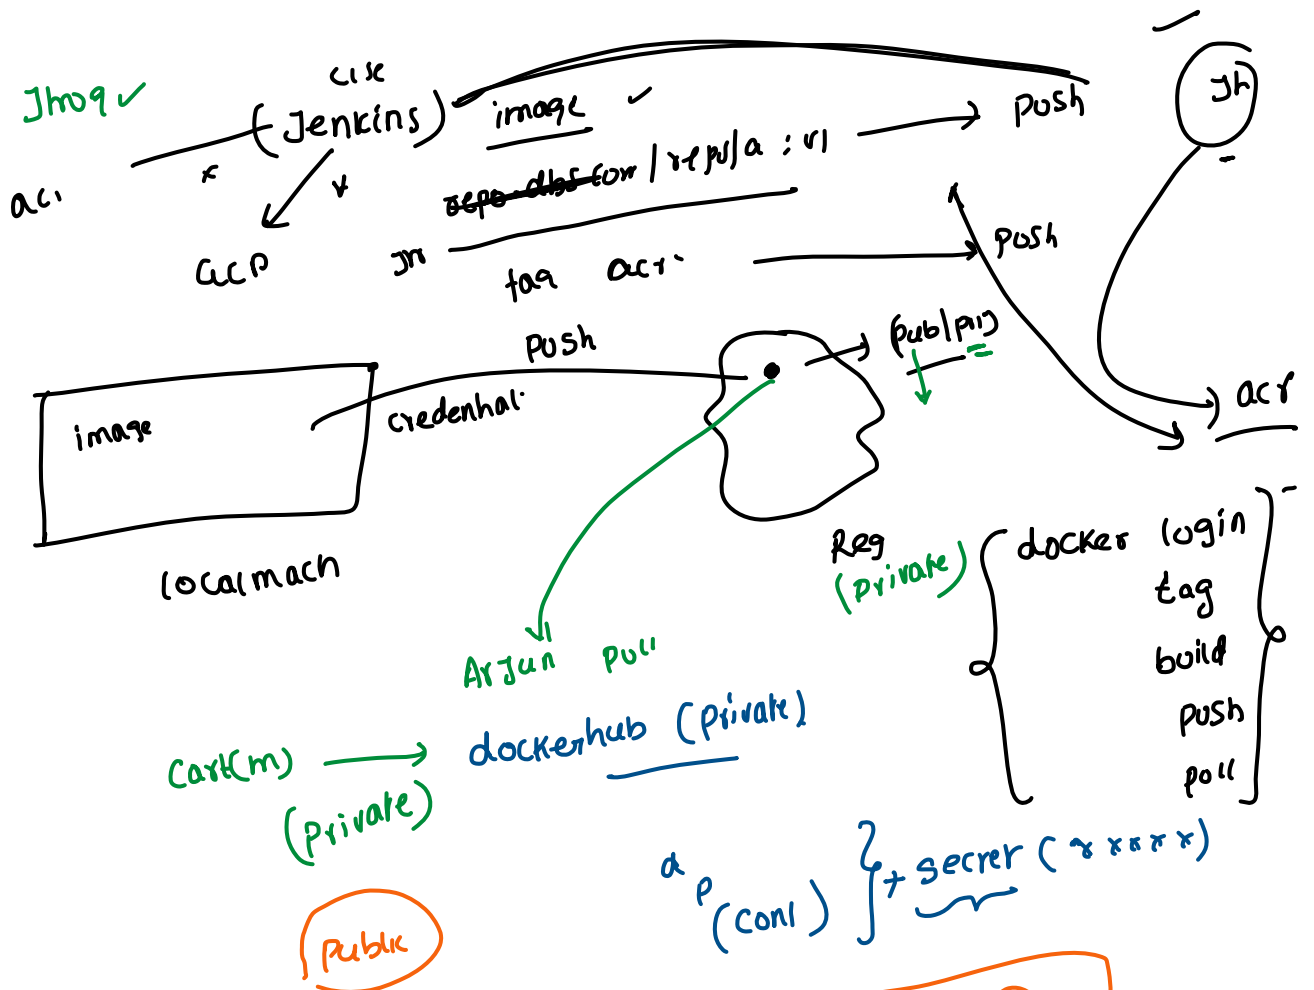 Jfrog ✓
CISC
(Jenkins)
image ✓
push
Jf
aci
GCP
/repo/a : v1
push
tag acr.
push
(pub/pri)
image
credenhal.
acr
localmach
Reg
(private)
docker login
tag
build
push
pull
Arjun pull
Cart(m)
dockerhub (private)
(private)
a
p
(con1)
+ secret (*****)
public